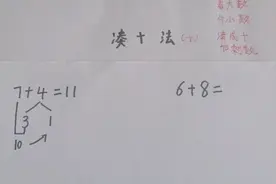 凑十法(一)
看大数
分小数
凑成十
7+4=11
3 1
10
6+8=